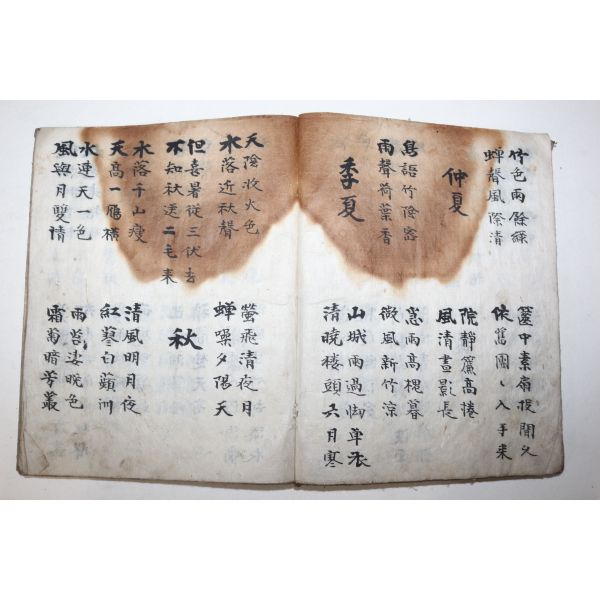 竹色雨餘綠
蟬聲風際清
篋中素扇投閒久
依舊團〻入手來
仲夏
院靜簾高捲
風清晝影長
鳥語竹陰密
雨聲荷葉香
雨高槐暮
微風新竹涼
季夏
山城雨過御單衣
清曉楼頭六月寒
天陰收火色
水落近秋聲
螢飛清夜月
蟬噪夕陽天
但喜暑從三伏去
不知秋送二毛来
秋
水落千山瘦
天高一鴈橫
清風明月夜
紅蓼白蘋洲
水連天一色
風與月雙清
雨苔凄晚色
霜菊暗芳叢